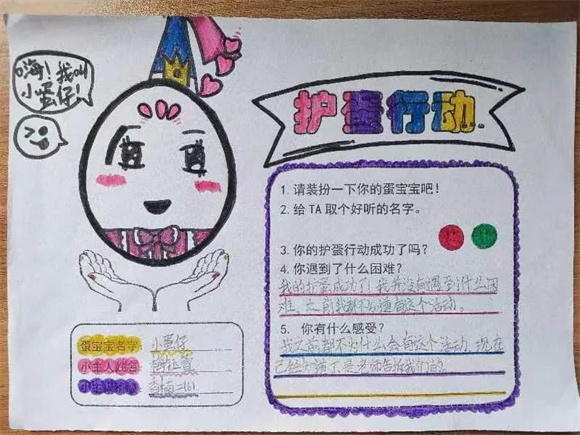 嗨！我叫
小蛋仔！
护蛋行动
1. 请装扮一下你的蛋宝宝吧！
2. 给 TA 取个好听的名字。
3. 你的护蛋行动成功了吗？
4. 你遇到了什么困难？
我的护蛋成功了，我并没有遇到什么困
难，之前我都不知道有这个活动。
5. 你有什么感受？
我之前都不为什么会有这个活动，现在
已经知道了是老师告诉我们的
蛋宝宝名字 小蛋仔
小主人姓名